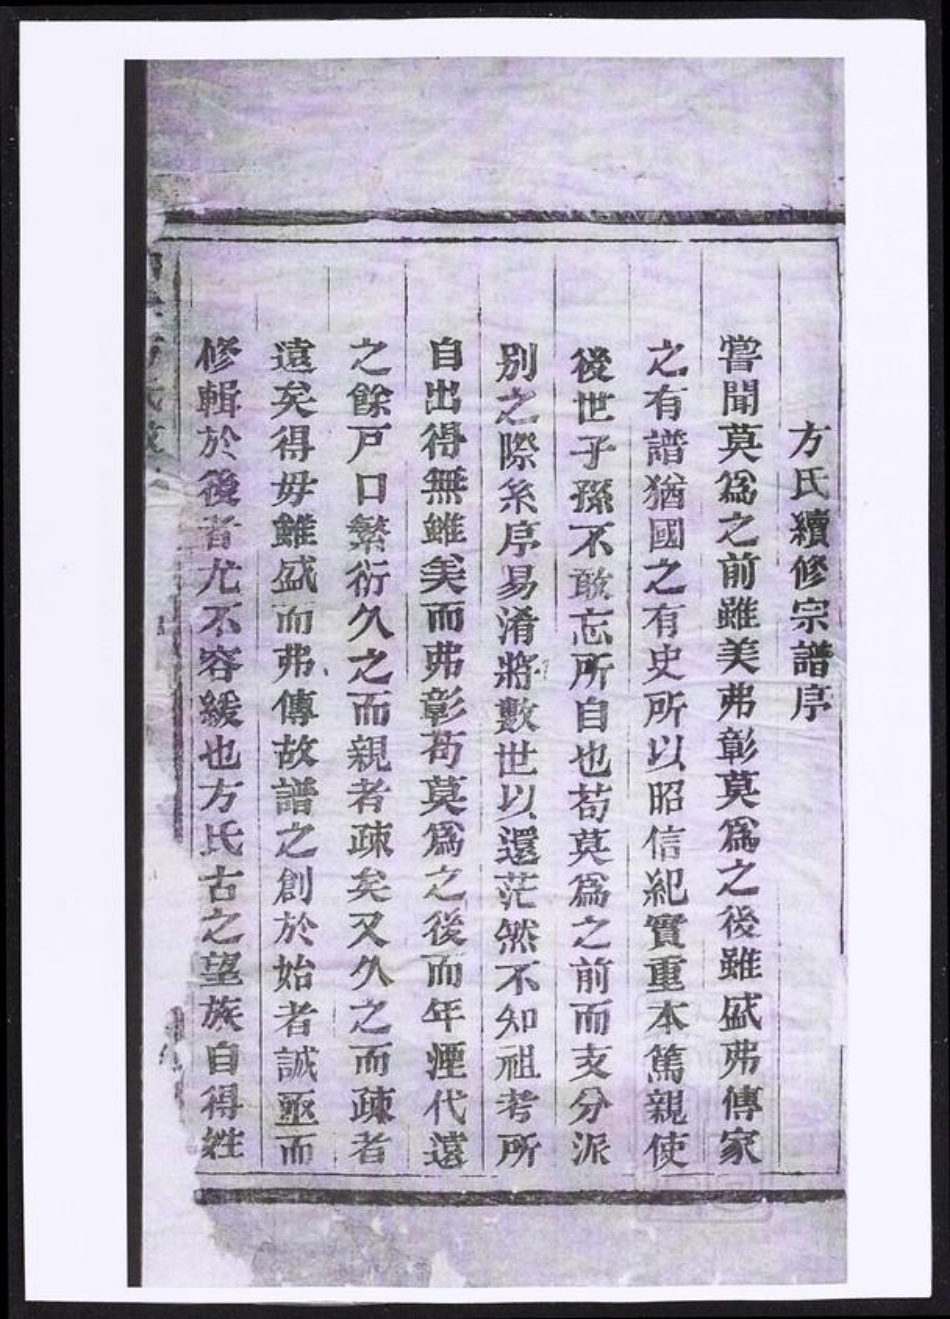 方氏續修宗譜序
嘗聞莫爲之前雖美弗彰莫爲之後雖盛弗傳家
之有譜猶國之有史所以昭信紀實重本篤親使
後世子孫不敢忘所自也苟莫爲之前而支分派
別之際系序易淆將數世以還茫然不知祖考所
自出得無雖美而弗彰苟莫爲之後而年湮代遠
之餘戸口繁衍久之而親者疎矣又久之而疎者
遠矣得毋雖盛而弗傳故譜之創於始者誠亟而
修輯於後者尤不容緩也方氏古之望族自得姓